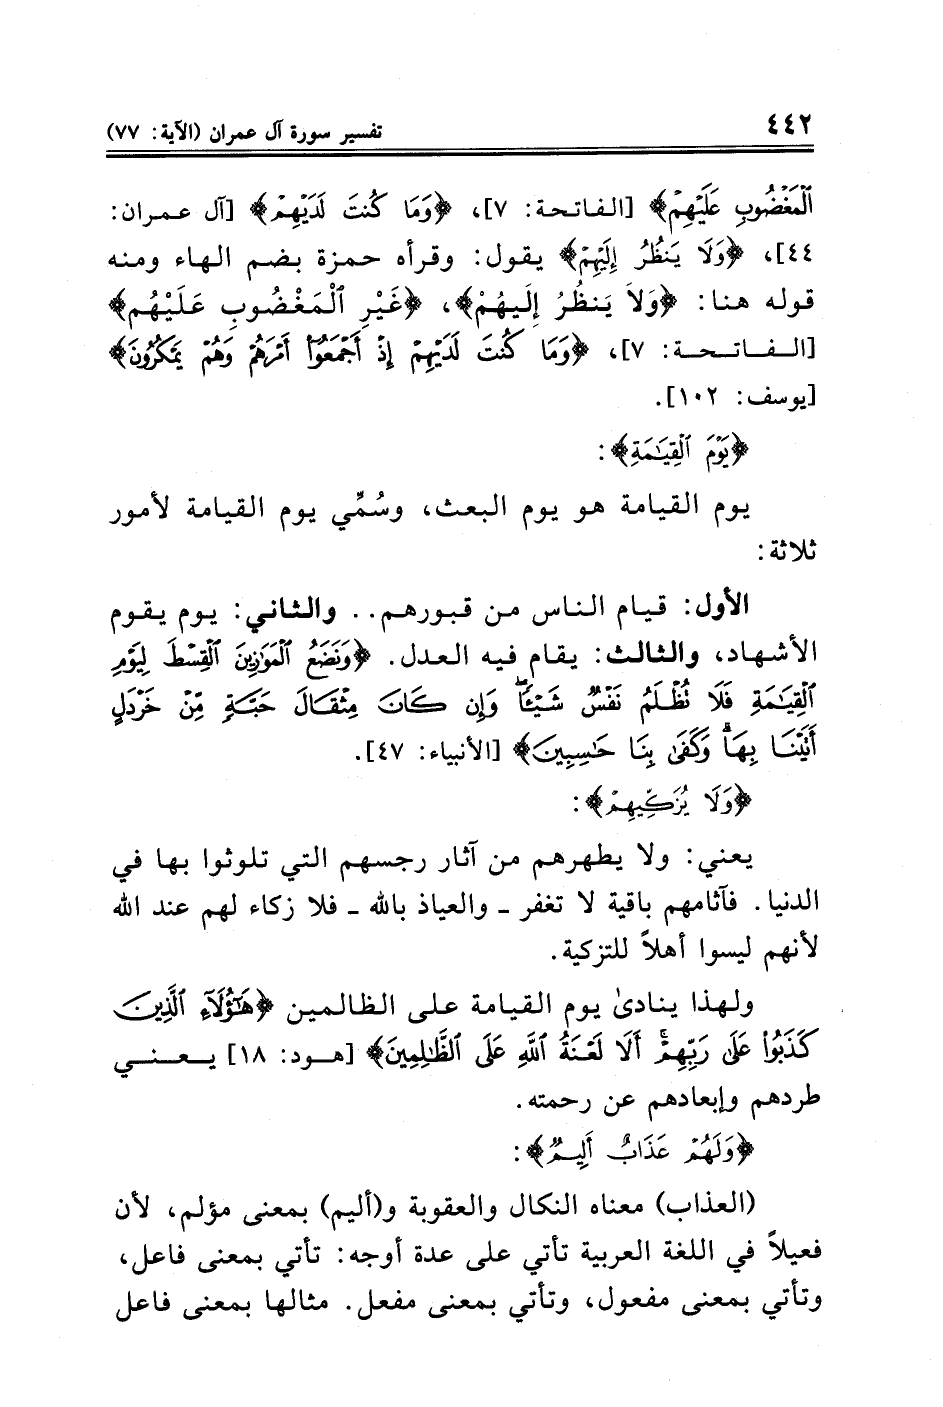 ٤٤٢ تفسير سورة آل عمران (الآية: ٧٧)
ٱلْمَغْضُوبِ عَلَيْهِمْ﴾ [الفاتحة: ٧]، ﴿وَمَا كُنتَ لَدَيْهِمْ﴾ [آل عمران:
٤٤]، ﴿وَلَا يَنظُرُ إِلَيْهِمْ﴾ يقول: وقرأه حمزة بضم الهاء ومنه
قوله هنا: ﴿وَلَا يَنظُرُ إِلَيهُمْ﴾، ﴿غَيْرِ ٱلْمَغْضُوبِ عَلَيْهُم﴾
[الفاتحة: ٧]، ﴿وَمَا كُنتَ لَدَيْهِمْ إِذْ أَجْمَعُوٓا۟ أَمْرَهُمْ وَهُمْ يَمْكُرُونَ﴾
[يوسف: ١٠٢].
﴿يَوْمَ ٱلْقِيَـٰمَةِ﴾:
يوم القيامة هو يوم البعث، وسُمِّي يوم القيامة لأمور
ثلاثة:
الأول: قيام الناس من قبورهم.. والثاني: يوم يقوم
الأشهاد، والثالث: يقام فيه العدل. ﴿وَنَضَعُ ٱلْمَوَٰزِينَ ٱلْقِسْطَ لِيَوْمِ
ٱلْقِيَـٰمَةِ فَلَا تُظْلَمُ نَفْسٌ شَيْـًٔا ۖ وَإِن كَانَ مِثْقَالَ حَبَّةٍ مِّنْ خَرْدَلٍ
أَتَيْنَا بِهَا ۗ وَكَفَىٰ بِنَا حَـٰسِبِينَ﴾ [الأنبياء: ٤٧].
﴿وَلَا يُزَكِّيهِمْ﴾:
يعني: ولا يطهرهم من آثار رجسهم التي تلوثوا بها في
الدنيا. فآثامهم باقية لا تغفر ـ والعياذ بالله ـ فلا زكاء لهم عند الله
لأنهم ليسوا أهلاً للتزكية.
ولهذا ينادىٰ يوم القيامة على الظالمين ﴿هَـٰٓؤُلَآءِ ٱلَّذِينَ
كَذَبُوا۟ عَلَىٰ رَبِّهِمْ ۚ أَلَا لَعْنَةُ ٱللَّهِ عَلَى ٱلظَّـٰلِمِينَ﴾ [هود: ١٨] يعني
طردهم وإبعادهم عن رحمته.
﴿وَلَهُمْ عَذَابٌ أَلِيمٌ﴾:
(العذاب) معناه النكال والعقوبة و(أليم) بمعنى مؤلم، لأن
فعيلاً في اللغة العربية تأتي على عدة أوجه: تأتي بمعنى فاعل،
وتأتي بمعنى مفعول، وتأتي بمعنى مفعل. مثالها بمعنى فاعل